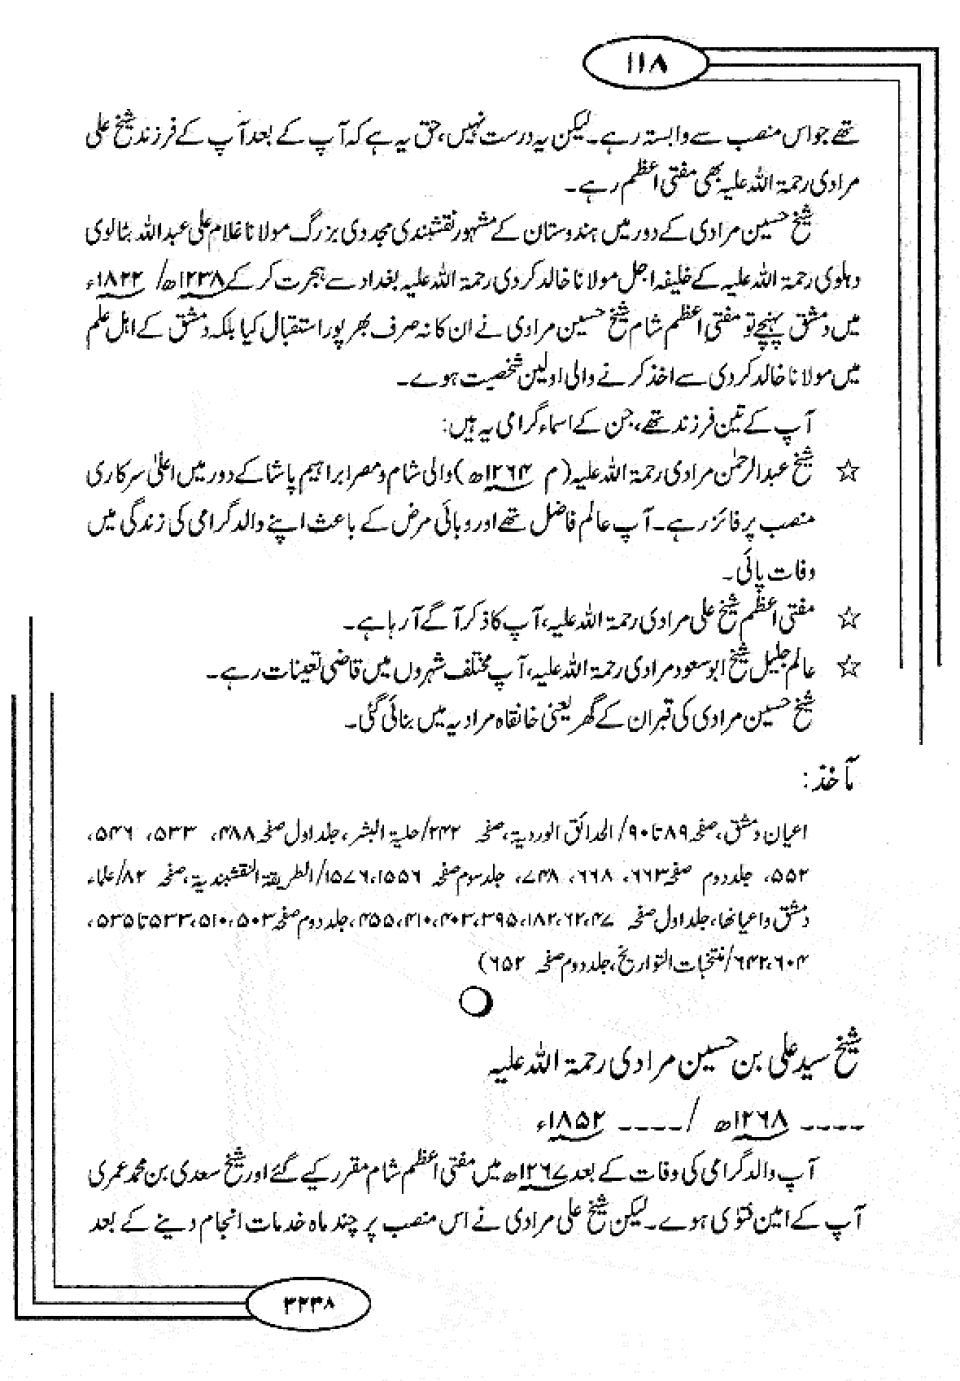 ۱۱۸
تھے جو اس منصب سے وابستہ رہے۔ لیکن یہ درست نہیں، حق یہ ہے کہ آپ کے بعد آپ کے فرزند شیخ علی
مرادی رحمۃ اللہ علیہ بھی مفتی اعظم رہے۔
شیخ حسین مرادی کے دور میں ہندوستان کے مشہور نقشبندی مجددی بزرگ مولانا غلام علی عبداللہ بٹالوی
دہلوی رحمۃ اللہ علیہ کے خلیفہ اجل مولانا خالد کردی رحمۃ اللہ علیہ بغداد سے ہجرت کر کے ۱۲۳۸ھ/ ۱۸۲۲ء
میں دمشق پہنچے تو مفتی اعظم شام شیخ حسین مرادی نے ان کا نہ صرف بھر پور استقبال کیا بلکہ دمشق کے اہل علم
میں مولانا خالد کردی سے اخذ کرنے والی اولین شخصیت ہوے۔
آپ کے تین فرزند تھے، جن کے اسماء گرامی یہ ہیں:
☆ شیخ عبدالرحمٰن مرادی رحمۃ اللہ علیہ (م ۱۲۶۴ھ) والی شام و مصر ابراہیم پاشا کے دور میں اعلیٰ سرکاری
منصب پر فائز رہے۔ آپ عالم فاضل تھے اور وبائی مرض کے باعث اپنے والد گرامی کی زندگی میں
وفات پائی۔
☆ مفتی اعظم شیخ علی مرادی رحمۃ اللہ علیہ، آپ کا ذکر آگے آ رہا ہے۔
☆ عالم جلیل شیخ ابوسعود مرادی رحمۃ اللہ علیہ، آپ مختلف شہروں میں قاضی تعینات رہے۔
شیخ حسین مرادی کی قبر ان کے گھر یعنی خانقاہ مرادیہ میں بنائی گئی۔
مآخذ:
اعیان دمشق، صفحہ ۸۹ تا ۹۰/ الحدائق الوردیۃ، صفحہ ۲۴۲/ حلیۃ البشر، جلد اول صفحہ ۴۸۸، ۵۳۳، ۵۴۶،
۵۵۲، جلد دوم صفحہ ۶۶۳، ۶۶۸، ۷۴۸، جلد سوم صفحہ ۱۵۵۶، ۱۵۷۶/ الطریقۃ النقشبندیۃ، صفحہ ۸۲/ علماء
دمشق واعیانھا، جلد اول صفحہ ۴۷، ۶۲، ۱۸۲، ۳۹۵، ۴۰۳، ۴۱۰، ۴۵۵، جلد دوم صفحہ ۵۰۳، ۵۱۰، ۵۳۳ تا ۵۳۵،
۶۰۴، ۶۴۲/ منتخبات التواریخ، جلد دوم صفحہ ۶۵۲)
شیخ سید علی بن حسین مرادی رحمۃ اللہ علیہ
---- ۱۲۶۸ھ / ---- ۱۸۵۲ء
آپ والد گرامی کی وفات کے بعد ۱۲۶۷ھ میں مفتی اعظم شام مقرر کیے گئے اور شیخ سعدی بن محمد عمری
آپ کے امین فتوٰی ہوے۔ لیکن شیخ علی مرادی نے اس منصب پر چند ماہ خدمات انجام دینے کے بعد
۳۲۳۸